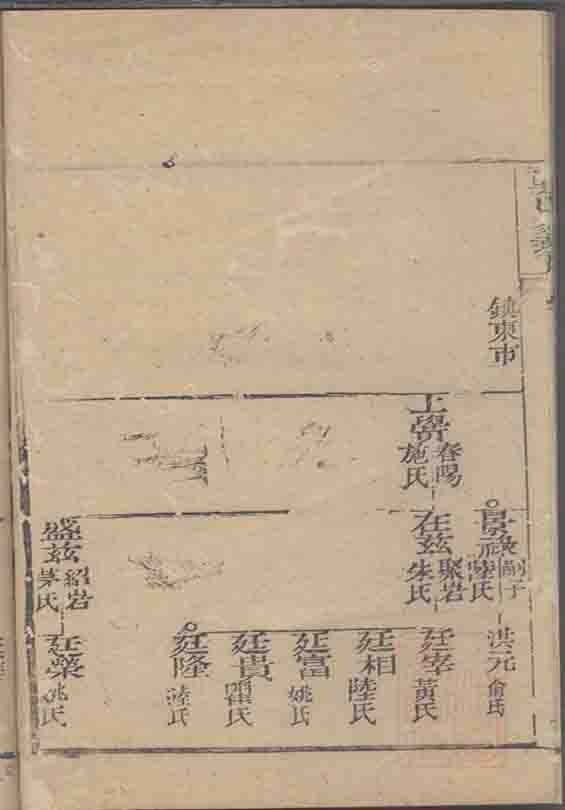 鎮東市
士學
春陽
施氏
景祿
嗣子
陸氏
在茲
聚岩
朱氏
盛茲
紹岩
茅氏
洪元
俞氏
廷宰
黃氏
廷相
陸氏
廷富
姚氏
廷貴
瞿氏
廷隆
陸氏
廷榮
姚氏